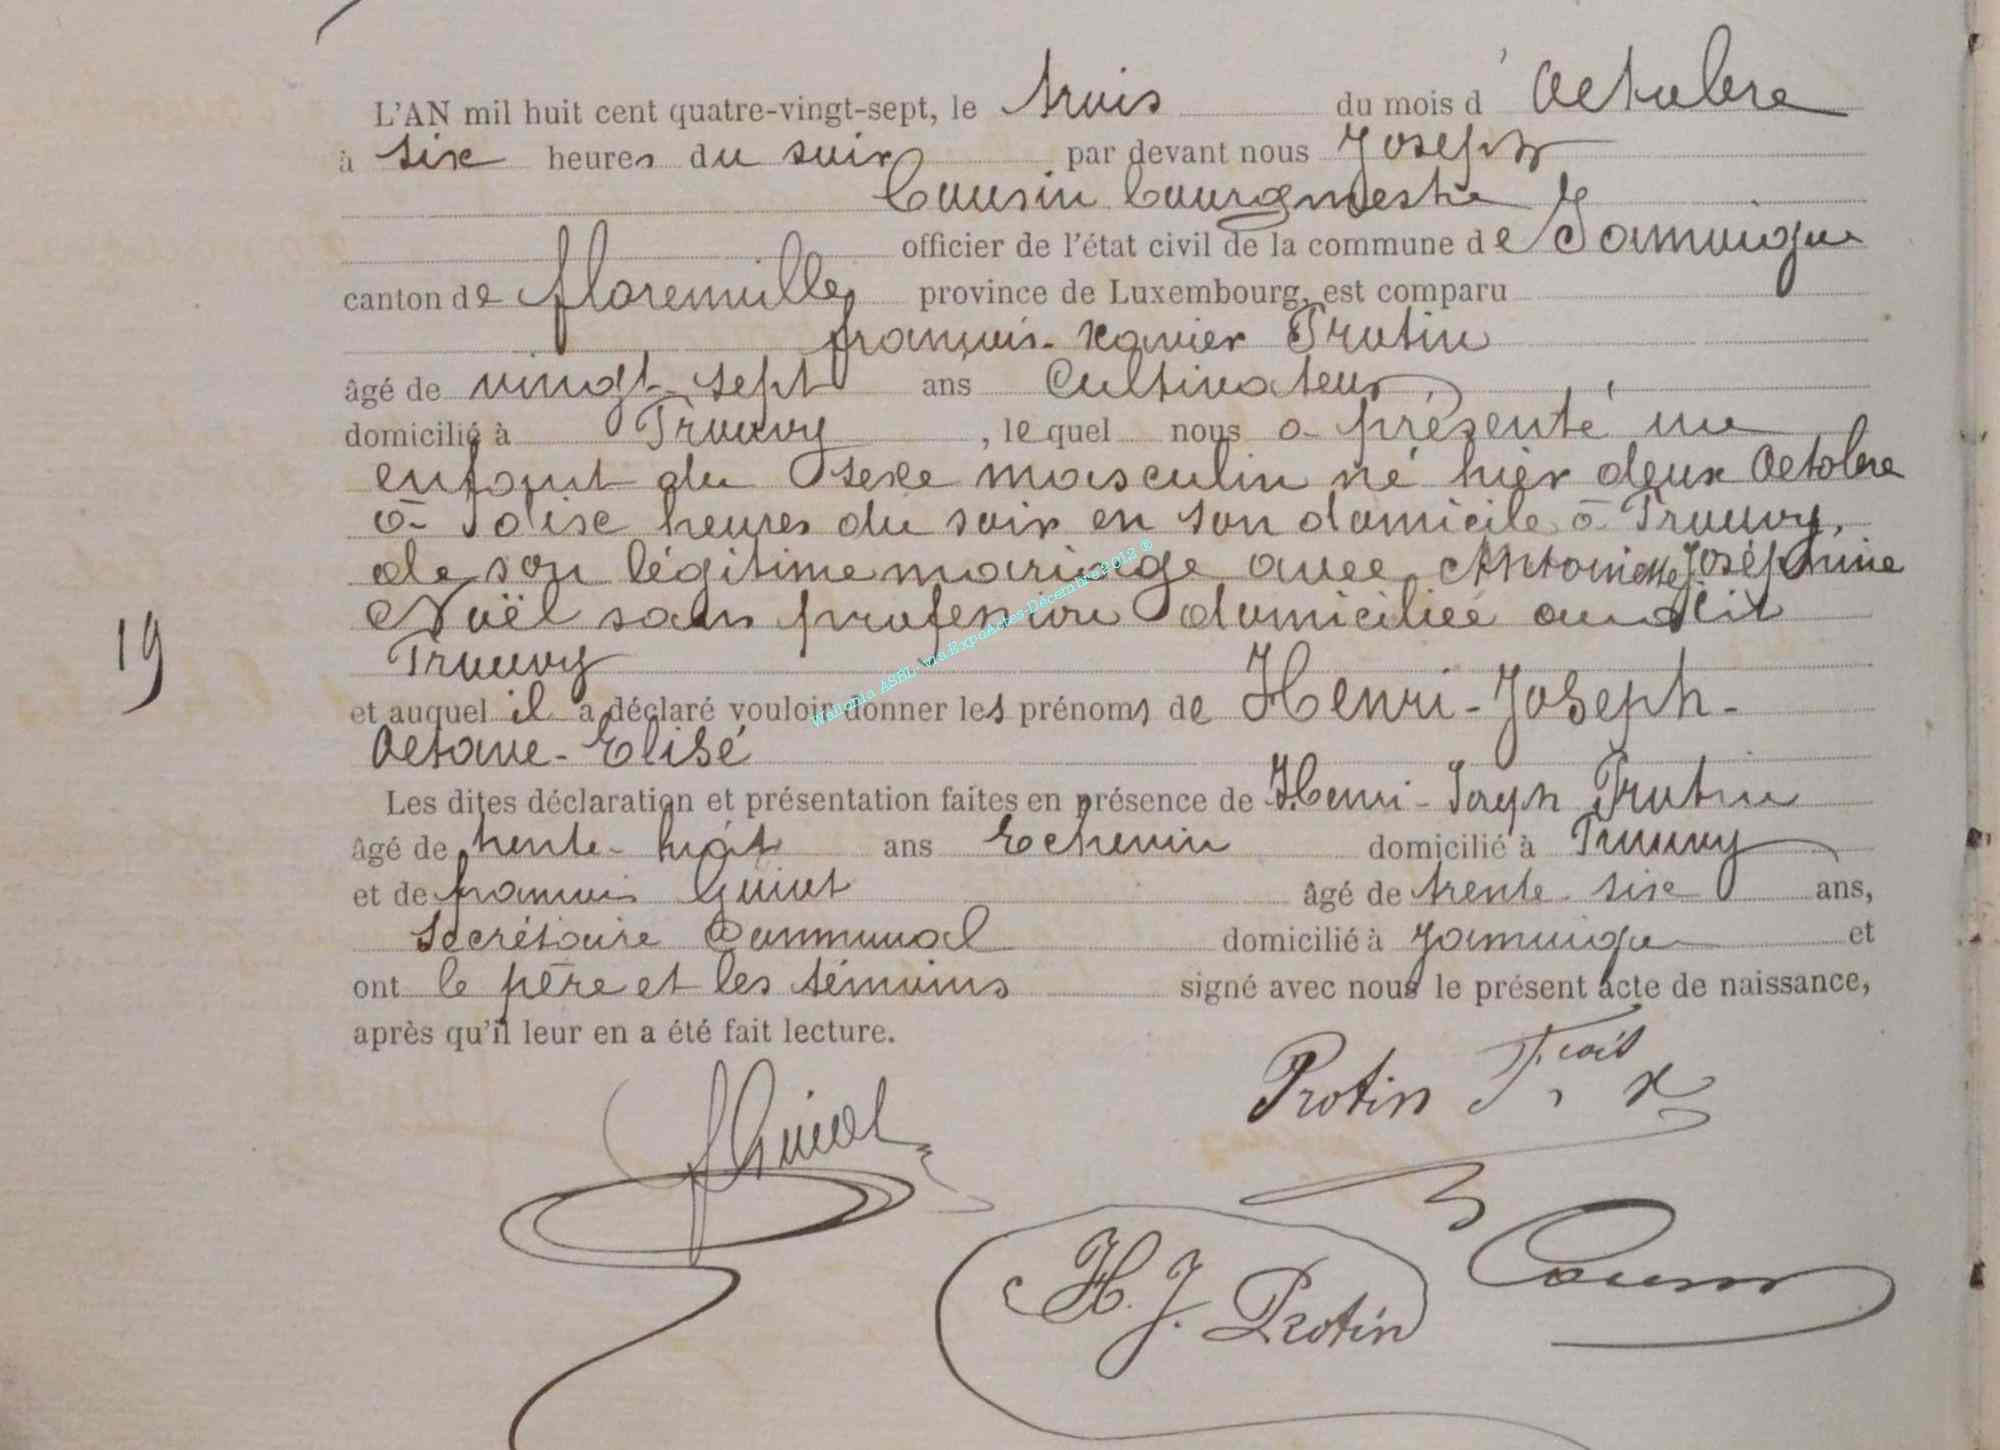 L'AN mil huit cent quatre-vingt-sept, le trois du mois d'Octobre
à six heures du soir par devant nous Joseph
Cousin bourgmestre
officier de l'état civil de la commune de Jamoigne
canton de florenville province de Luxembourg, est comparu
françois-Xavier Protin
âgé de vingt-sept ans Cultivateur
domicilié à Prouvy, lequel nous a présenté un
enfant du sexe masculin né hier deux Octobre
à dix heures du soir en son domicile à Prouvy,
de son légitime mariage avec Antoinette Joséphine
Noël sans profession domiciliée audit
Prouvy
et auquel il a déclaré vouloir donner les prénoms de Henri-Joseph-
Octave-Elisé
Les dites déclaration et présentation faites en présence de Henri-Joseph Protin
âgé de trente-huit ans Echevin domicilié à Prouvy
et de françois Guiot âgé de trente-six ans,
19
secrétaire Communal domicilié à Jamoigne et
ont le père et les témoins signé avec nous le présent acte de naissance,
après qu'il leur en a été fait lecture.
Protin F.çois X
f Guiot
H. J. Protin
Cousin
Wallonia ASBL via ExpoActes-Décembre 2012 ®